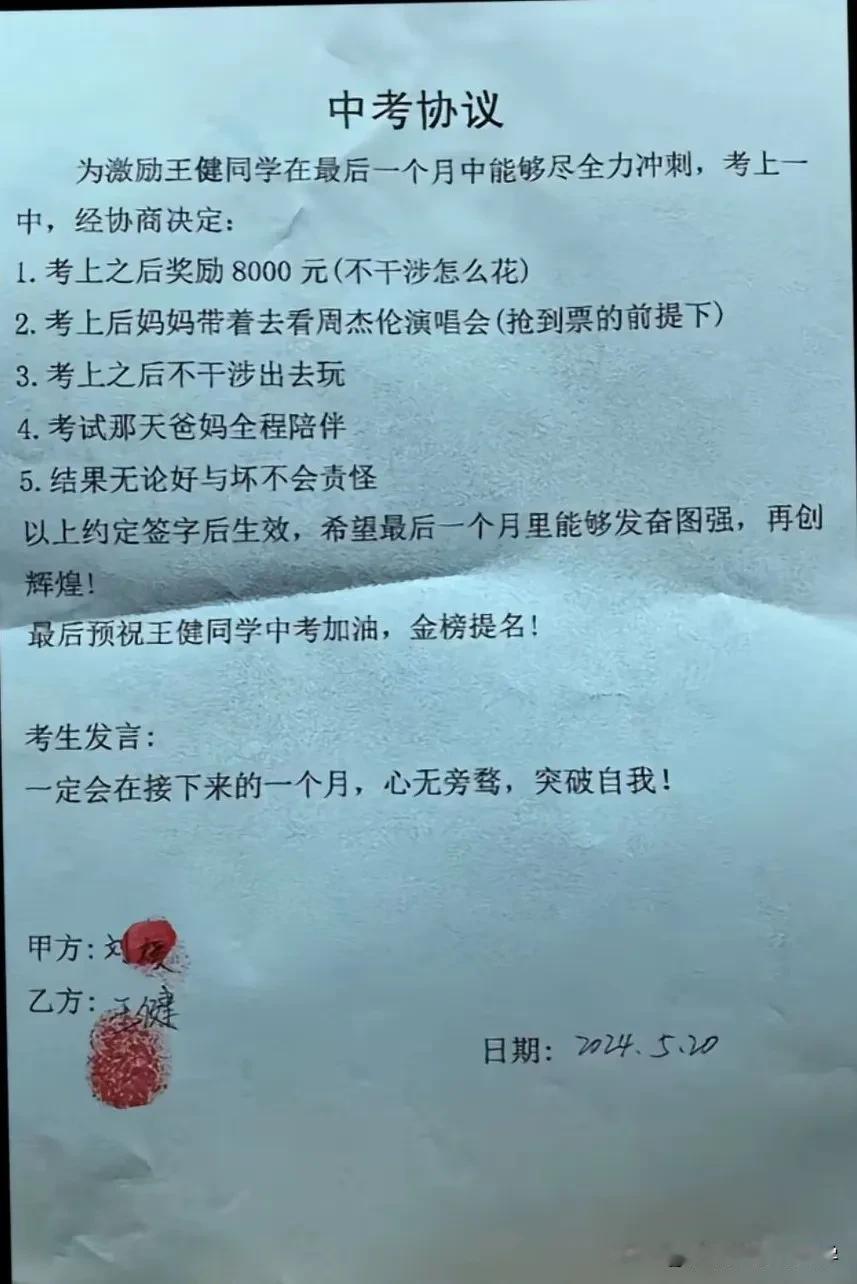 中考协议
为激励王健同学在最后一个月中能够尽全力冲刺，考上一
中，经协商决定：
1.考上之后奖励8000元(不干涉怎么花)
2.考上后妈妈带着去看周杰伦演唱会(抢到票的前提下)
3.考上之后不干涉出去玩
4.考试那天爸妈全程陪伴
5.结果无论好与坏不会责怪
以上约定签字后生效，希望最后一个月里能够发奋图强，再创
辉煌!
最后预祝王健同学中考加油，金榜提名!
考生发言：
一定会在接下来的一个月，心无旁骛，突破自我！
甲方：刘
乙方：王健
日期：2024.5.20